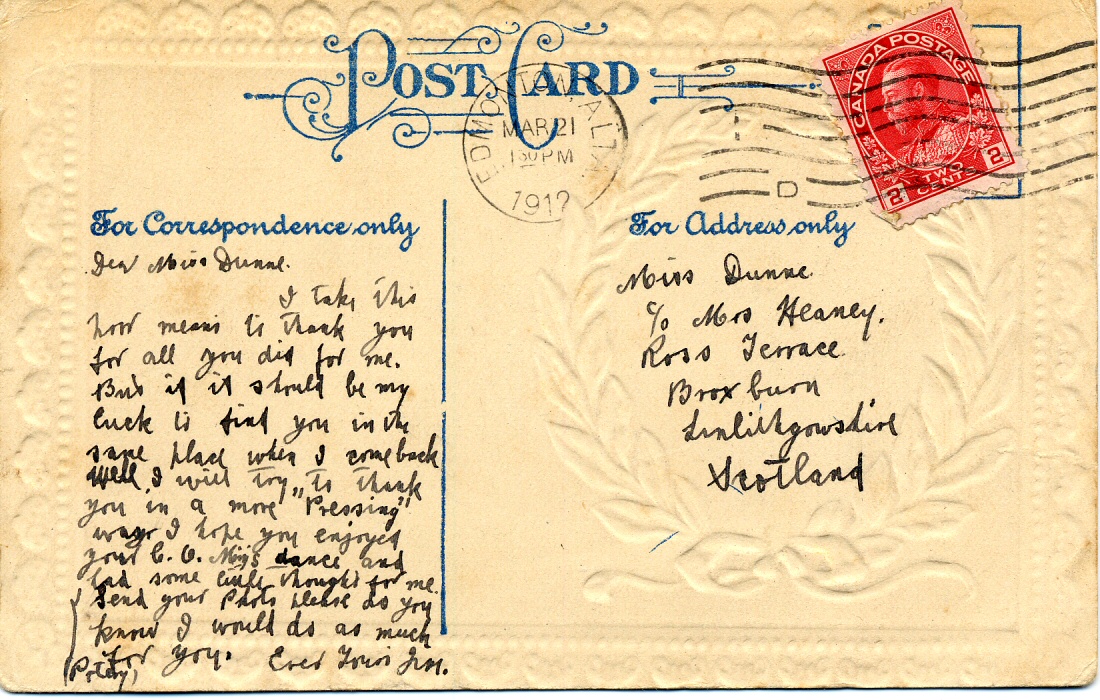 POST CARD
EDMONTON, ALTA.
MAR 21
130 PM
1912
D
CANADA POSTAGE
2 TWO CENTS 2
For Correspondence only
Dear Miss Dunne.
I take this
poor means to thank you
for all you did for me.
But if it should be my
luck to find you in the
same place when I come back
Well, I will try "to thank
you in a more "Pressing"
way I hope you enjoyed
your C. O. dance and
had some little thought for me.
Send your Photo please as you
know I would do as much
for you. Ever Yours Jim.
For Address only
Miss Dunne
c/o Mrs Heaney.
Ross Terrace
Broxburn
Linlithgowshire
Scotland